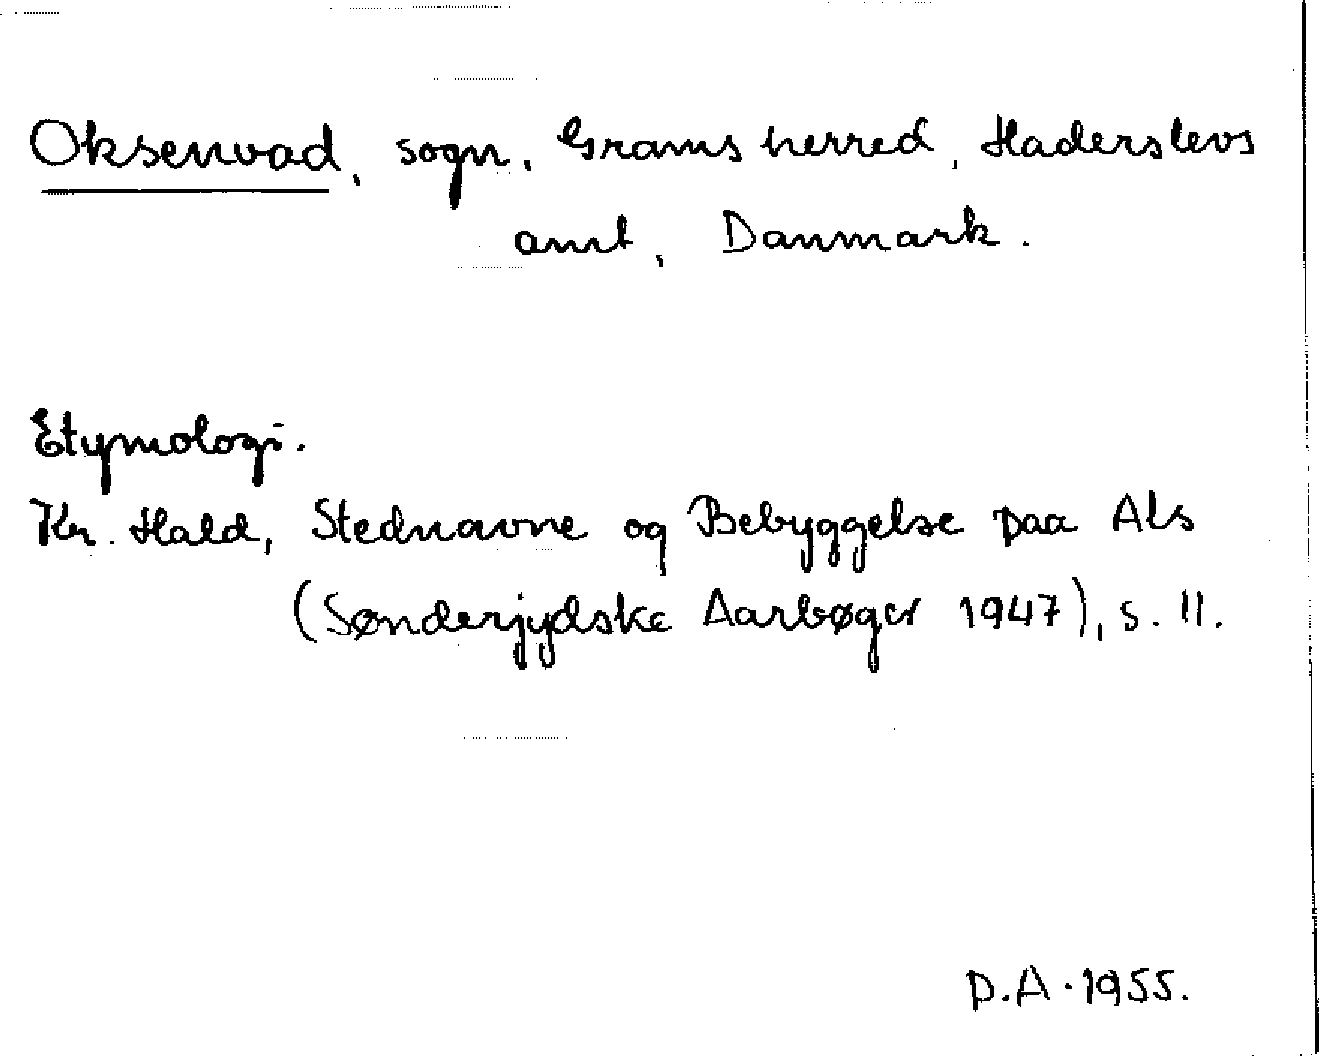 Oksenvad, sogn, Grams herred, Haderslevs
amt, Danmark.
Etymologi.
Kr. Hald, Stednavne og Bebyggelse paa Als
(Sønderjydske Aarbøger 1947), s. 11.
D.A. 1955.